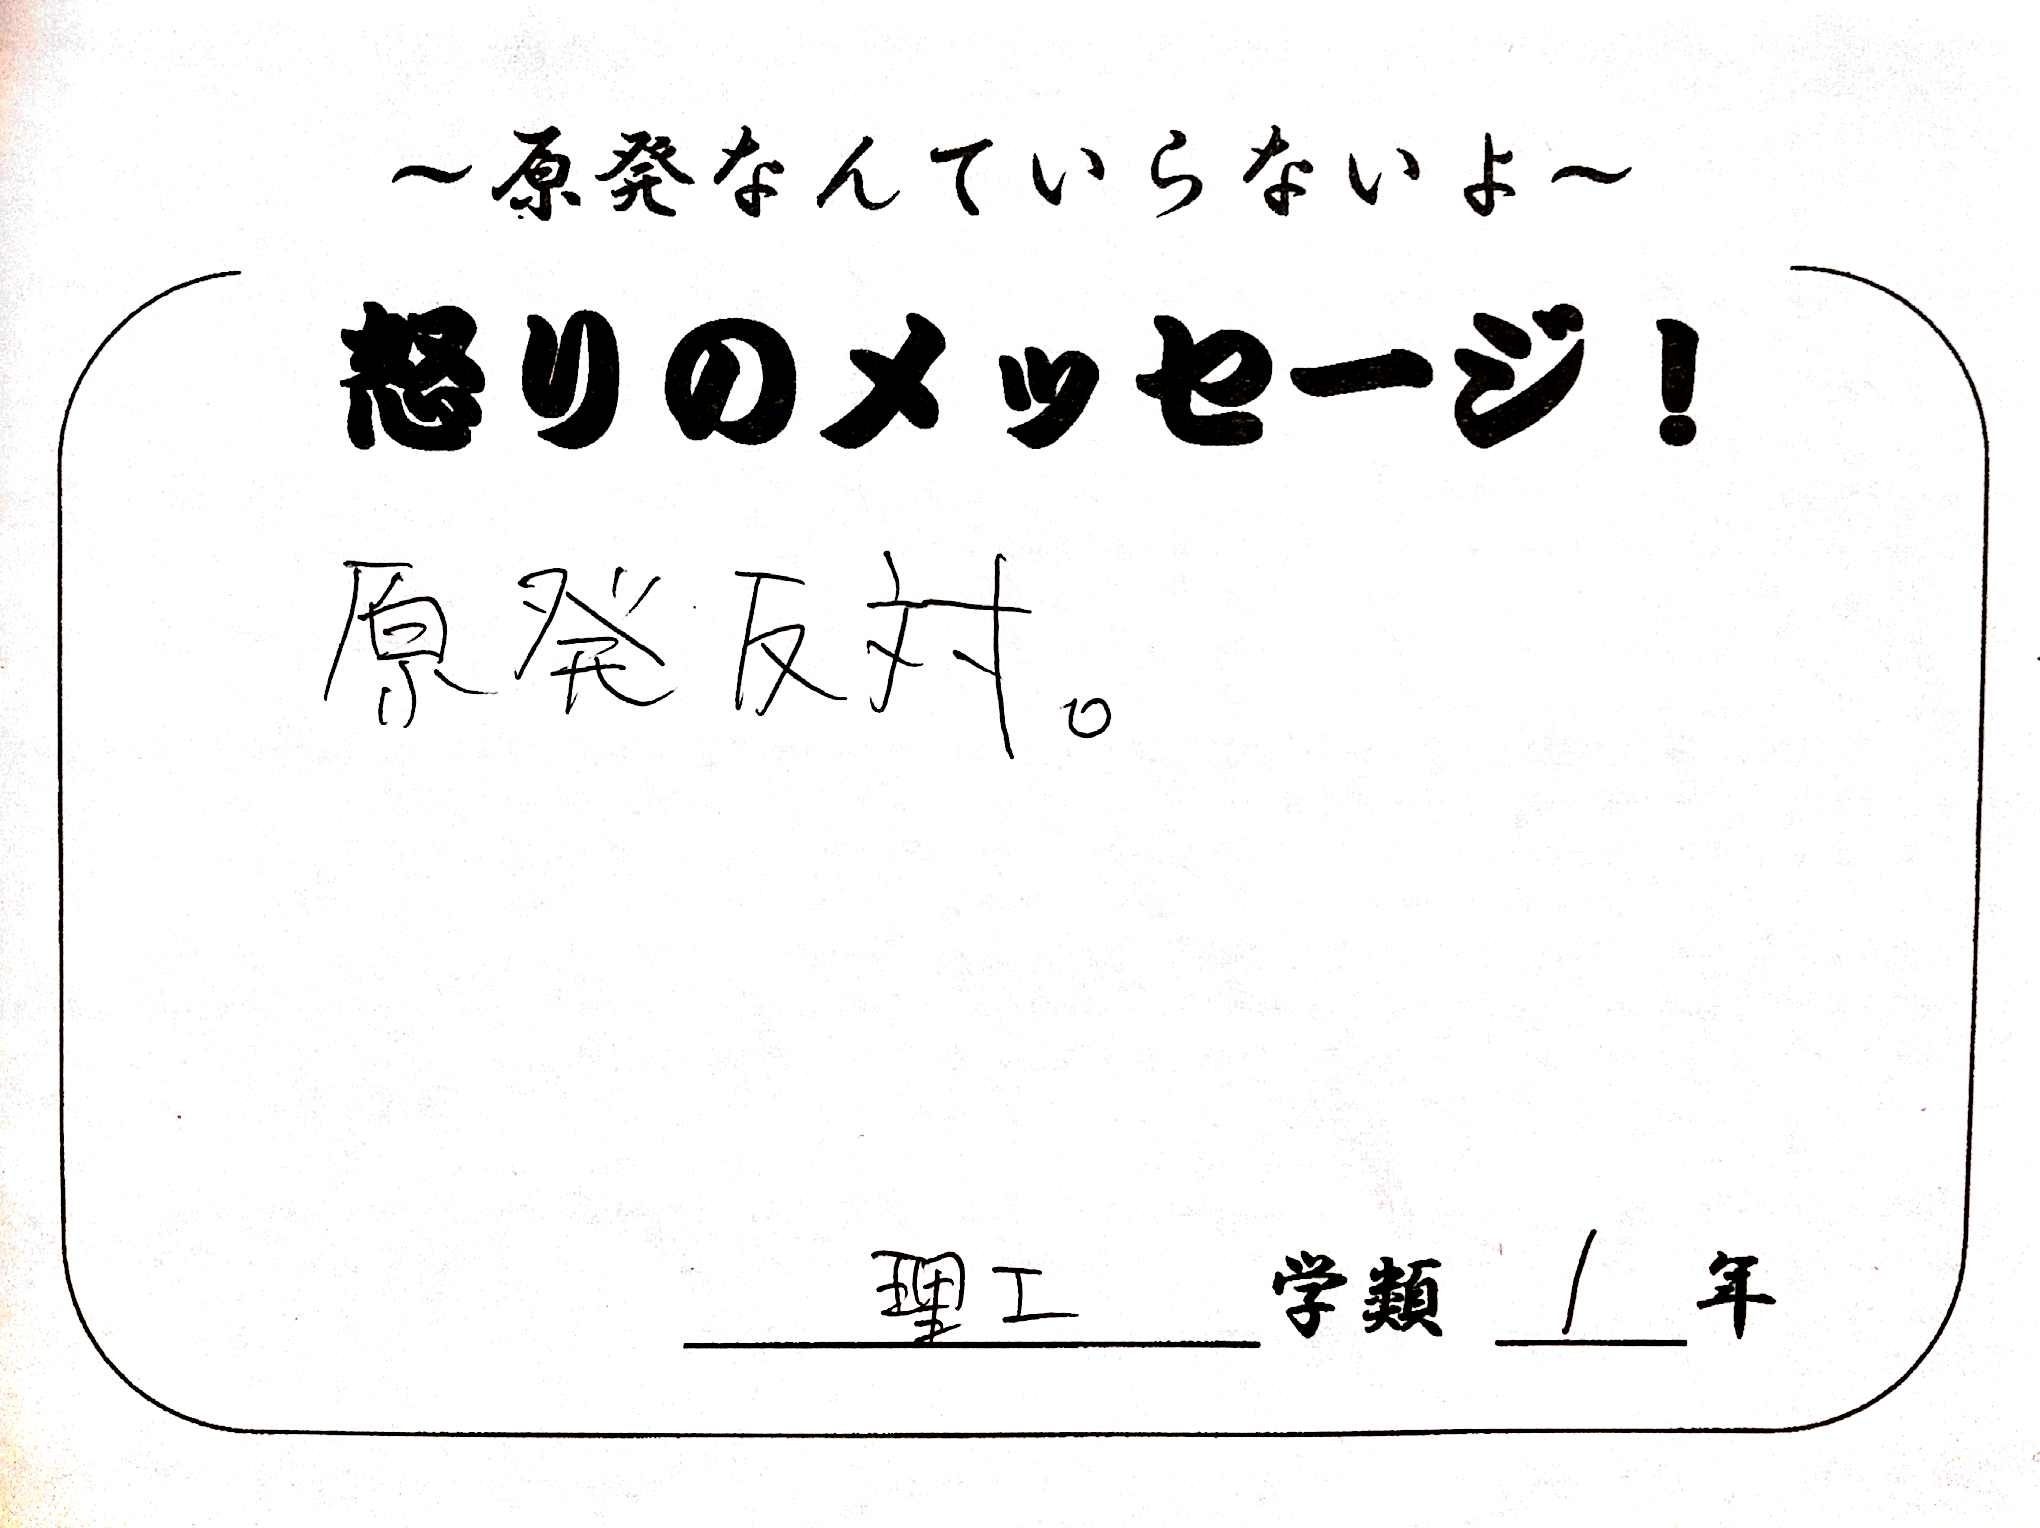 ～原発なんていらないよ～
怒りのメッセージ！
原発反対。
理工学類 1年